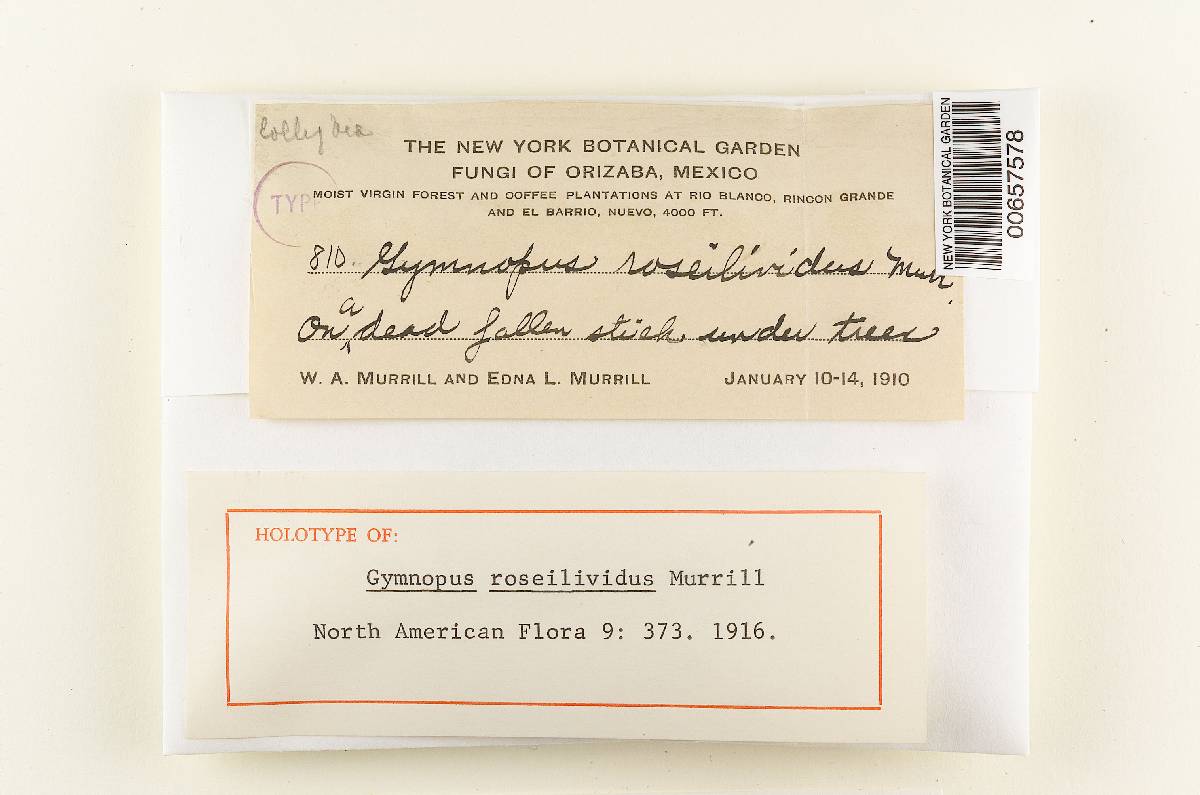 Collybia
THE NEW YORK BOTANICAL GARDEN
FUNGI OF ORIZABA, MEXICO
TYP
MOIST VIRGIN FOREST AND COFFEE PLANTATIONS AT RIO BLANCO, RINCON GRANDE
AND EL BARRIO, NUEVO, 4000 FT.
810. Gymnopus roseilividus Murr.
On a dead fallen stick, under trees
W. A. MURRILL AND EDNA L. MURRILL JANUARY 10-14, 1910
NEW YORK BOTANICAL GARDEN
00657578
HOLOTYPE OF:
Gymnopus roseilividus Murrill
North American Flora 9: 373. 1916.